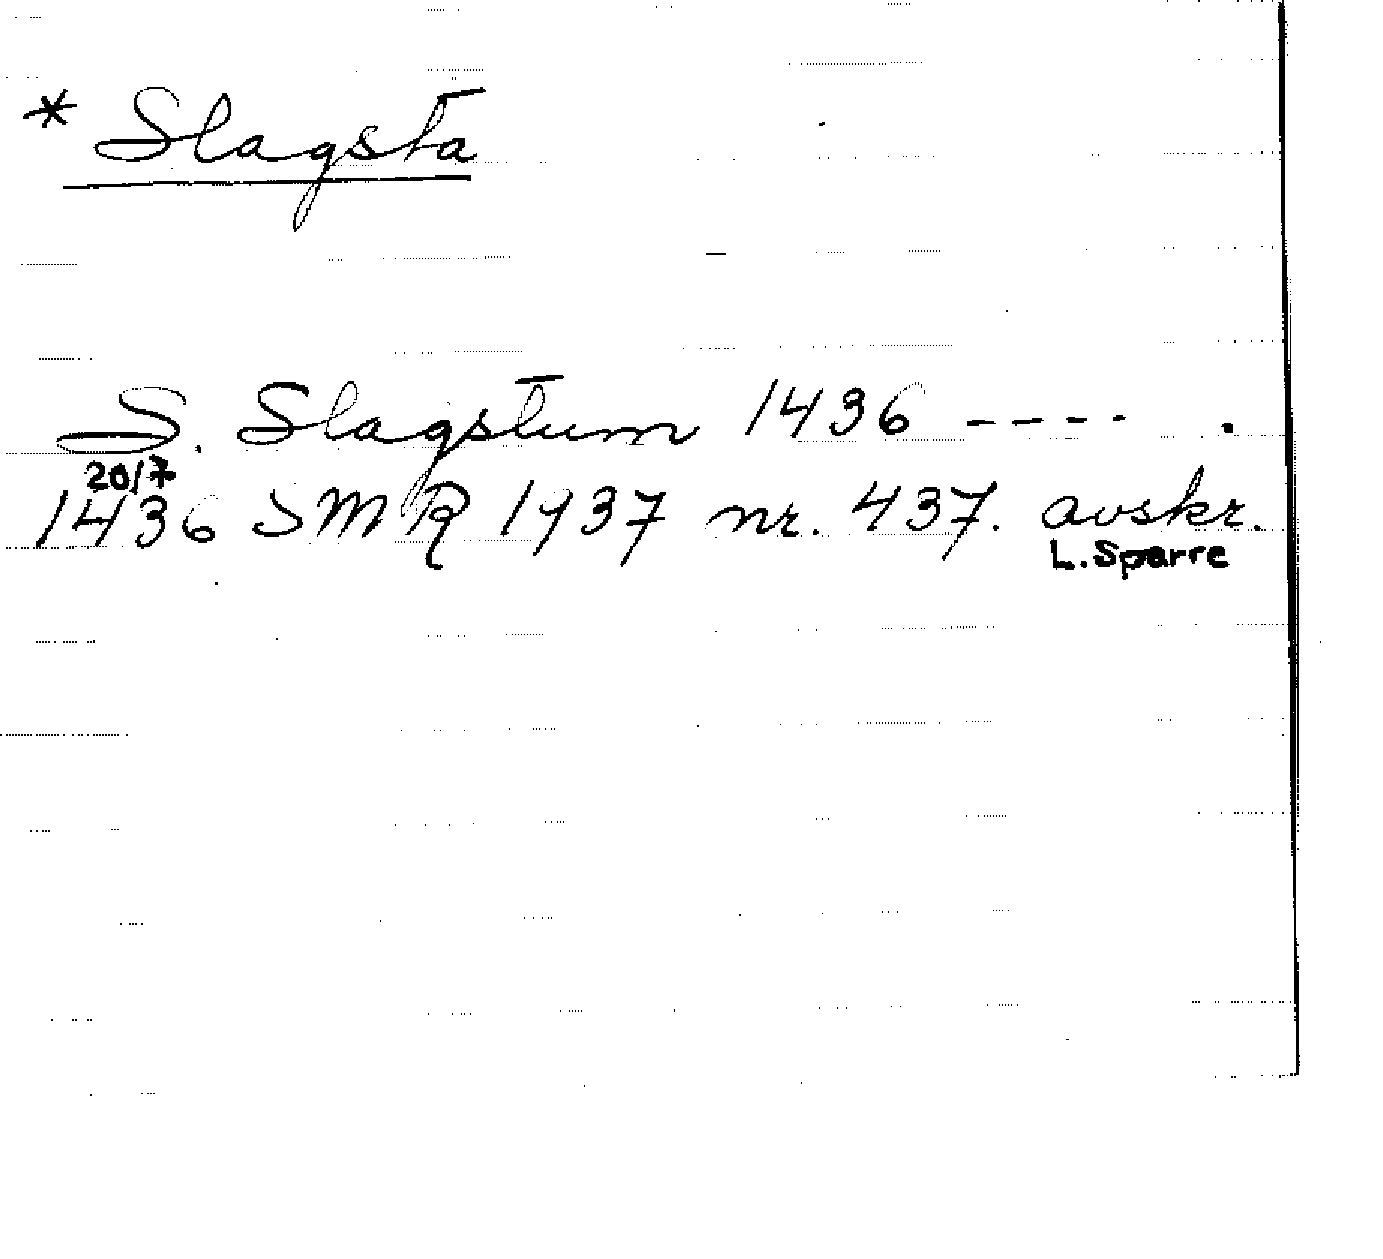 * Slagsta
S. Slagstum 1436 ---- .
20/7
1436 SMR 1937 nr. 437. avskr.
L. Sparre